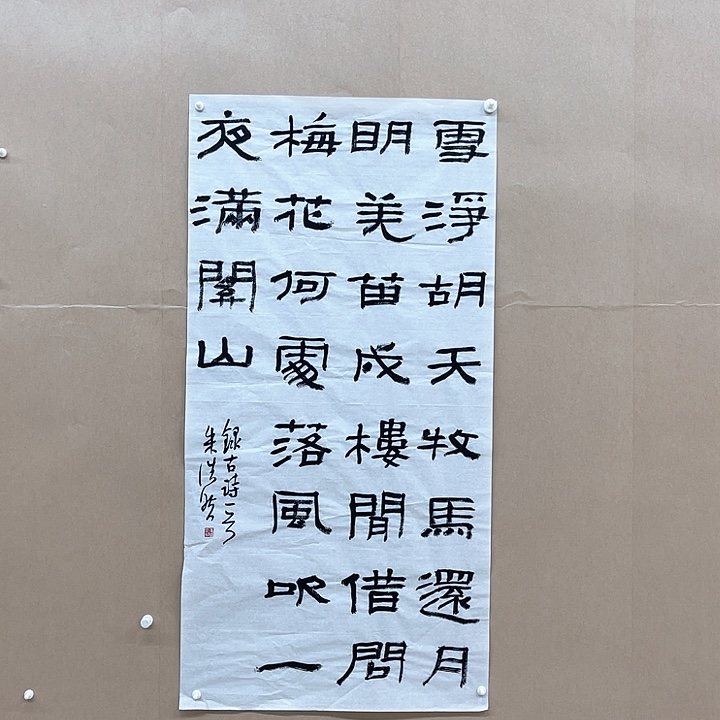 雪淨胡天牧馬還月
明羌笛戍樓間借問
梅花何處落風吹一
夜滿關山
錄古詩一首
朱浩